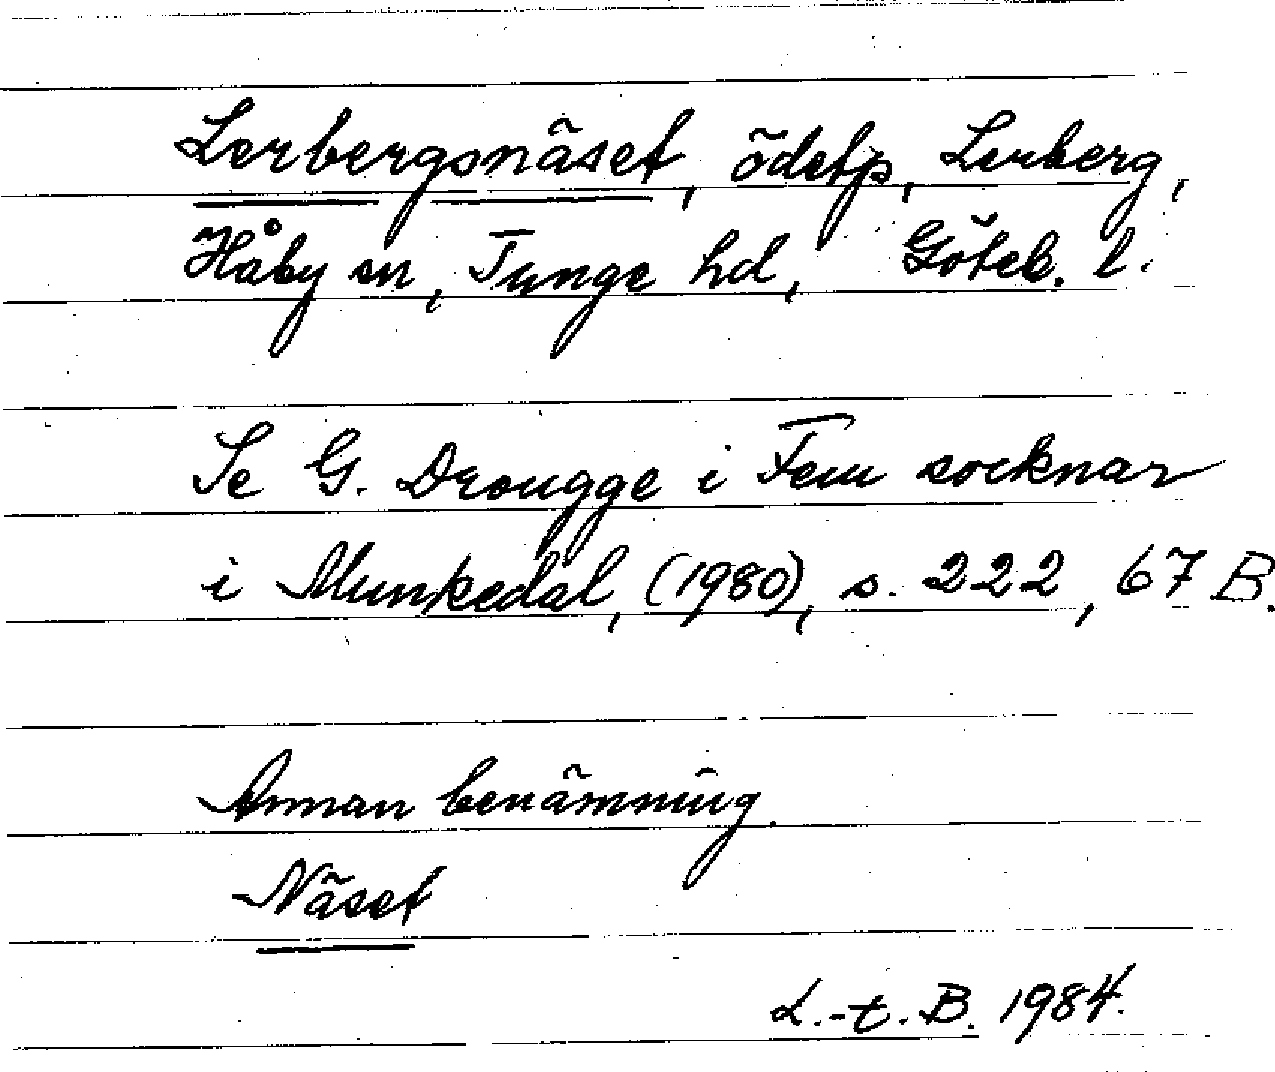 Lerbergsnäset, ödetp, Lerberg,
Håby sn, Tunge hd, Göteb. l.
Se G. Drougge i Fem socknar
i Munkedal, (1980), s. 222, 67 B.
Annan benämning.
Näset
L.-t. B. 1984.